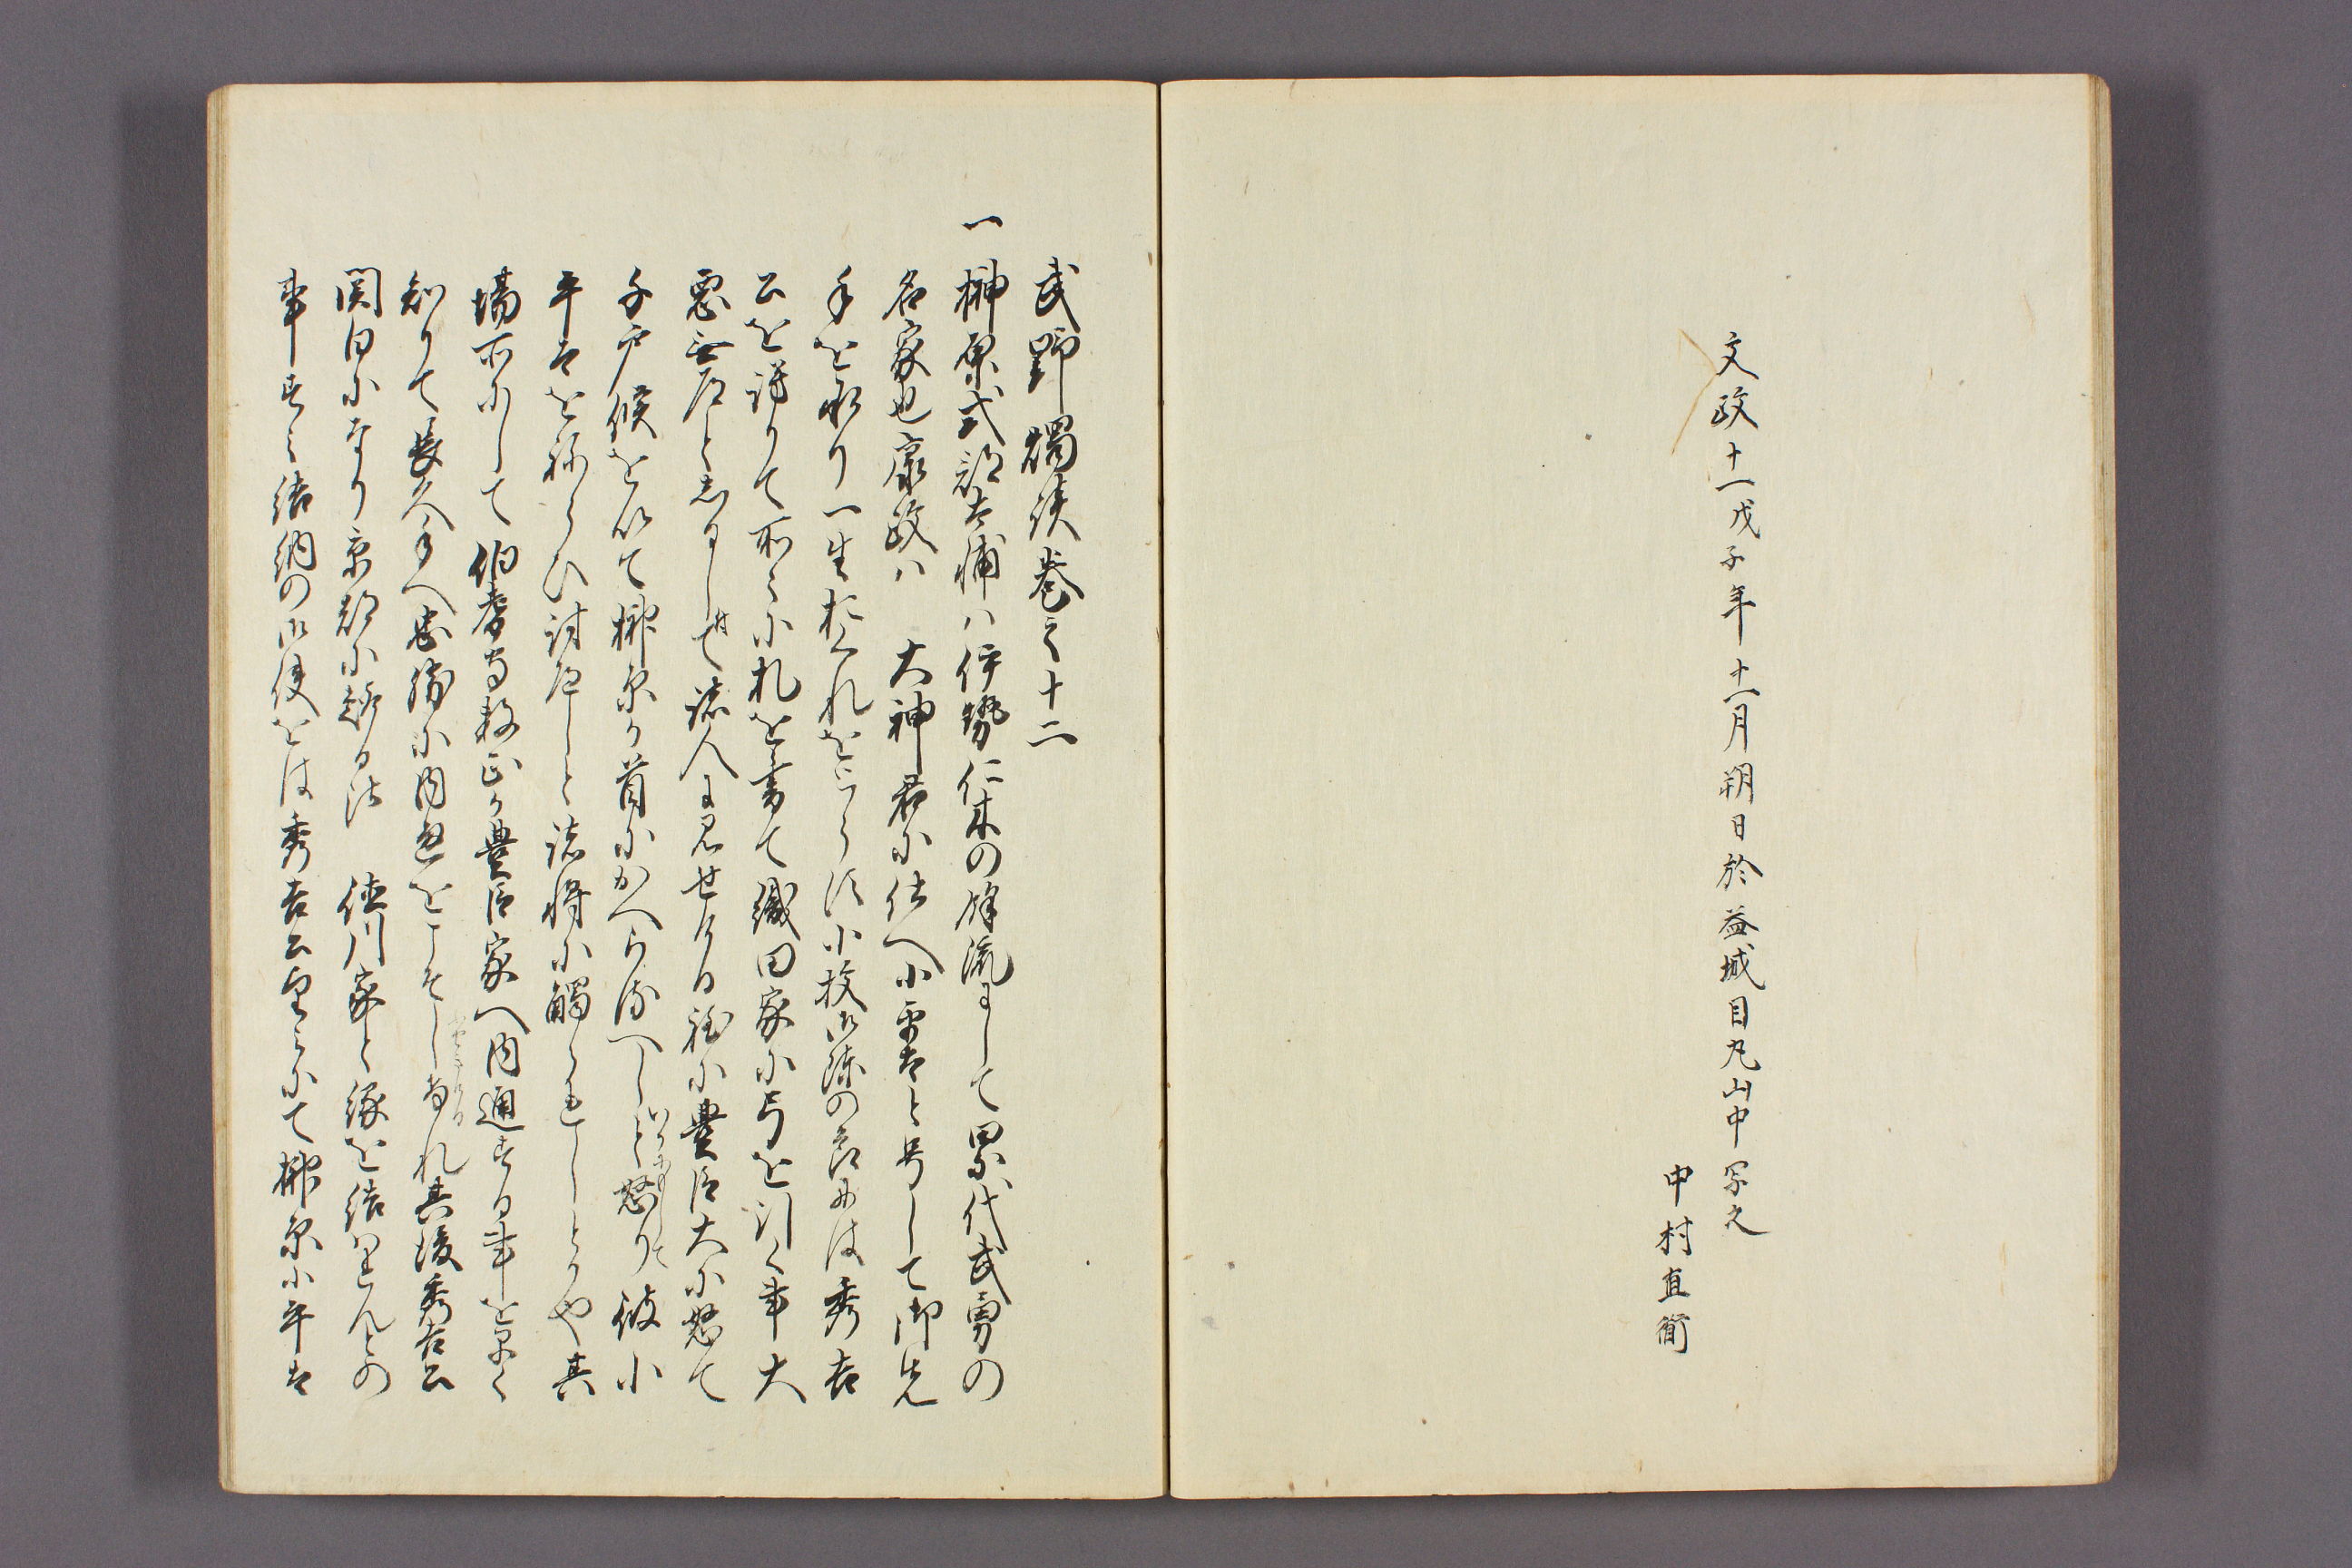 文政十一戊子年十一月朔日於益城目丸山中写之
中村直衛
武野燭談巻之十二
一榊原式部太輔ハ伊勢仁木の餘流にして累代武勇の
名家也康政ハ　大神君に仕へ小平太と号して御先
手を承り一生おくれをとらす小牧御陣の
公を謗りて所々に札を書て織田家に弓を引く事大
悪無道としるし諸人に見せける程に豊臣大に怒て
千戸侯を以て榊原か首にかへらるへしと怒り彼小
平太をねらひ討へしと諸将に觸られしとかや其
場所にして伯耆守数正か豊臣家へ内通する事を早く
知りて長久手へ忠勝に内通をこそしるされ其後秀吉公
関白になり京都に
徳川家と縁を結はれんとの
事すみ結納の御使をは秀吉公望みにて榊原小平太